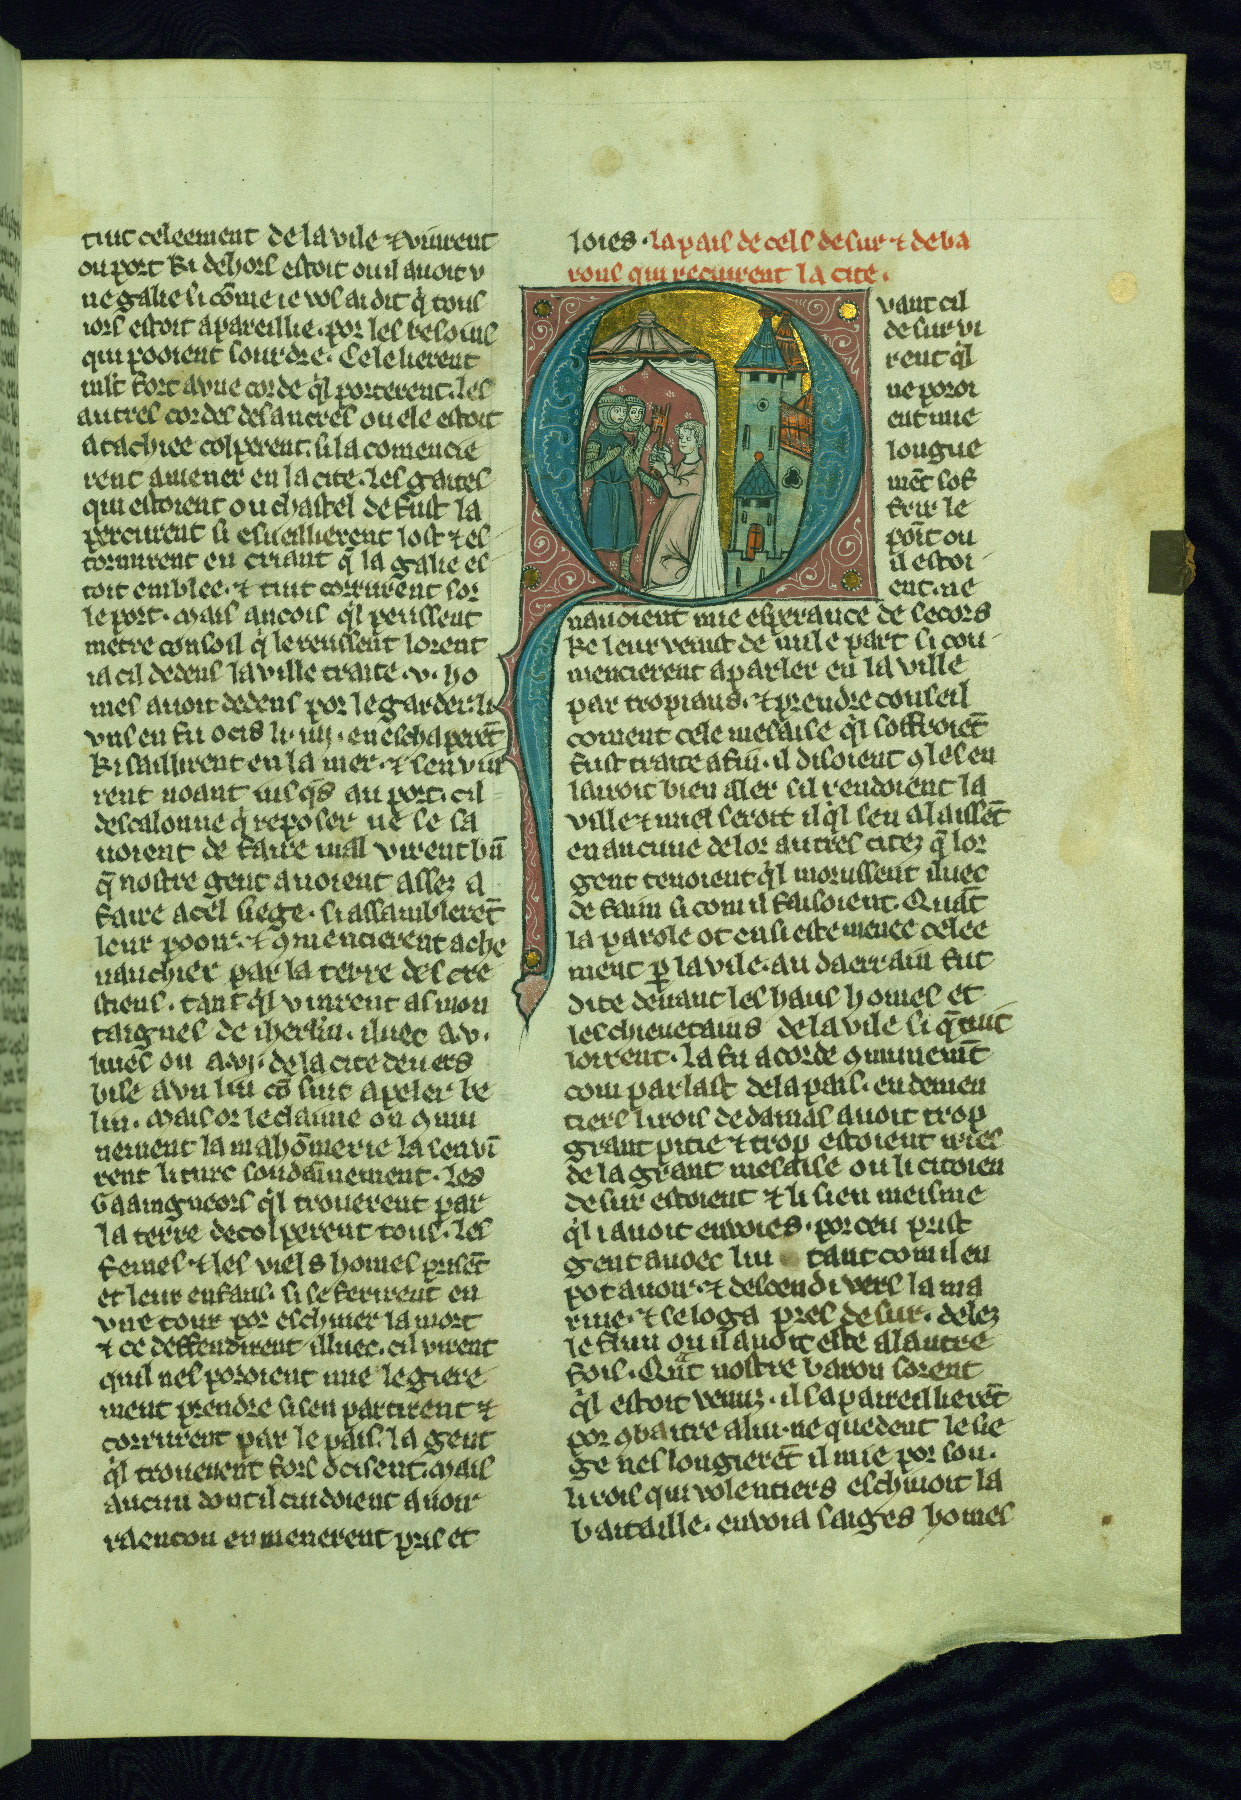 157
tiut celeement de la vile & vinrent
ou port ki dehors estoit ou il auoit v
ne galie si cõme ie vos ai dit q̃ tous
iors estoit apareillie · por les besoins
qui pooient sourdre · Cele lierent
mlt fort a vne corde q̃l porterent · les
autres cordes des ancres ou ele estoit
atachiee colperent · si la comencie
rent amener en la cite · les gaites
qui estoient ou chastel de fust la
percurent si esueillierent lost & es
tormirent en criant q̃ la galie es
toit emblee · & tuit corrurent sor
le port · mais ancois q̃l peussent
metre consoil q̃ le reussent lorent
ia cil dedens la ville traite · v · ho
mes auoit dedens por le garder · li
vns en fu ocis li · iiij · en eschaperẽt
ki saillirent en la mer · & sen vin
rent noant iusq̃s au port · cil
descalonne q̃ reposer ne se sa
uoient de faire mal virent bñ
q̃ nostre gent auoient assez a
faire acel siege · si assamblerẽt
leur pooir · & 9mencierent a che
uauchier par la terre des cre
stiens · tant q̃l vinrent as mon
taignes de iherl̃m · iluec a · v ·
liues ou a · vj · de la cite deuers
bise a vn liu cõ siut apeler be
lin · mais or le claime on 9mu
nement la mahõmerie la sen vĩ
rent li turc soudainnement · les
Gaaingneors q̃l trouerent par
la terre decolperent tous · les
femes & les viels homes prisẽt
et leur enfans · si se ferirent en
vne tour por eschiuer la mort
& ce deffendirent illuec · cil virent
quil nel poroient mie legiere
ment prendre si sen partirent &
corrurent par le pais · la gent
q̃l trouerent fors ocisent · mais
aucun dont il cuidoient auoir
raencon en menerent pris et
loies · la pais de cels de sur & de ba
rons qui recuirent la cite ·
Quant cil
de sur vi
rent q̃l
ne poroi
ent mie
longue
mẽt sof
frir le
poĩt ou
il estoi
ent · ne
nauoient mie esperance de secors
ke leur venist de nule part si com
mencierent a parler en la ville
par tropiaus · & prendre conseil
coment cele mesaise q̃l soffroiẽt
fust traite a fin · il disoient 9 les en
lairoit bien aller sil rendoient la
ville & miels seroit il q̃l sen alaissẽt
en aucune de lor autres citez q̃ lor
gent tenoient q̃l morussent iluec
de faim si com il faisoient · Quãt
la parole ot ensi este menee celee
ment p̱ la vile · au daerrain fut
dite deuant les haus homes et
les chieuetains de la vile si q̃ tuit
loirent · la fu acorde 9munemẽt
com parlast de la pais · en demen
tiers li rois de damas auoit trop
grant pitie & trop estoient iries
de la grant mesaise ou li citoien
de sur estoient & li sien meisme
q̃l i auoit enuoies · por ceu prist
gent auoec lui tant com il en
pot auoir · & descendi vers la ma
rine · & se loga pres de sur · delez
le flun ou il auoit este alautre
fois · Qnãt nostre baron sorent
q̃l estoit venuz · il sapareillierẽt
por 9baitre a lui · ne quedent le sie
ge nes lougierẽt il mie por son ·
li rois qui volentiers eschiuoit la
bataille · enuoia saiges homes